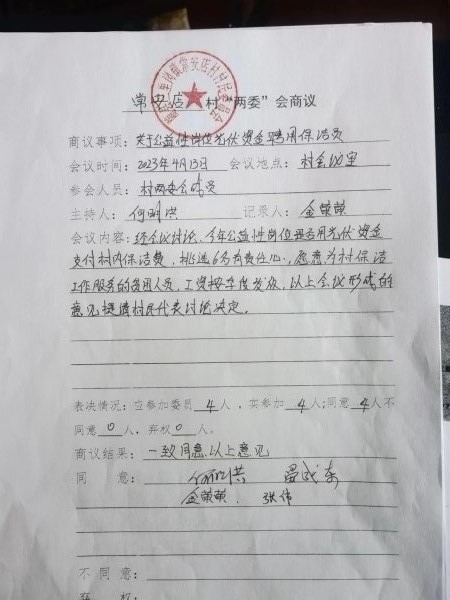 常安店村“两委”会商议
商议事项：关于公益性岗位光伏资金聘用保洁员
会议时间：2023年4月13日 会议地点：村会议室
参会人员：村两委会成员
主持人：何明洪 记录人：金荣荣
会议内容：经会议讨论，今年公益性岗位聘用光伏资金
支付村内保洁费，挑选6名有责任心，愿意为村保洁
工作服务的贫困人员，工资按季度发放，以上会议形成的
意见提请村民代表讨论决定。
表决情况：应参加委员4人，实参加4人；同意4人不
同意0人，弃权0人。
商议结果：一致同意以上意见
同 意：
张伟
不同意：
弃 权